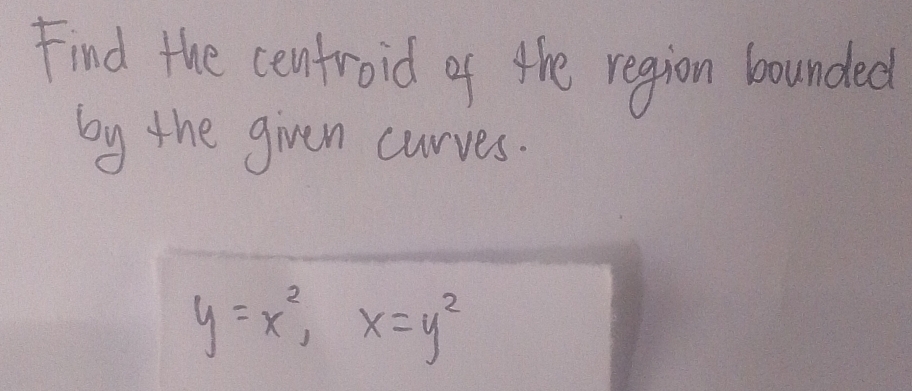 Find the centroid of the region bounded
by the given curves.
y = x², x = y²